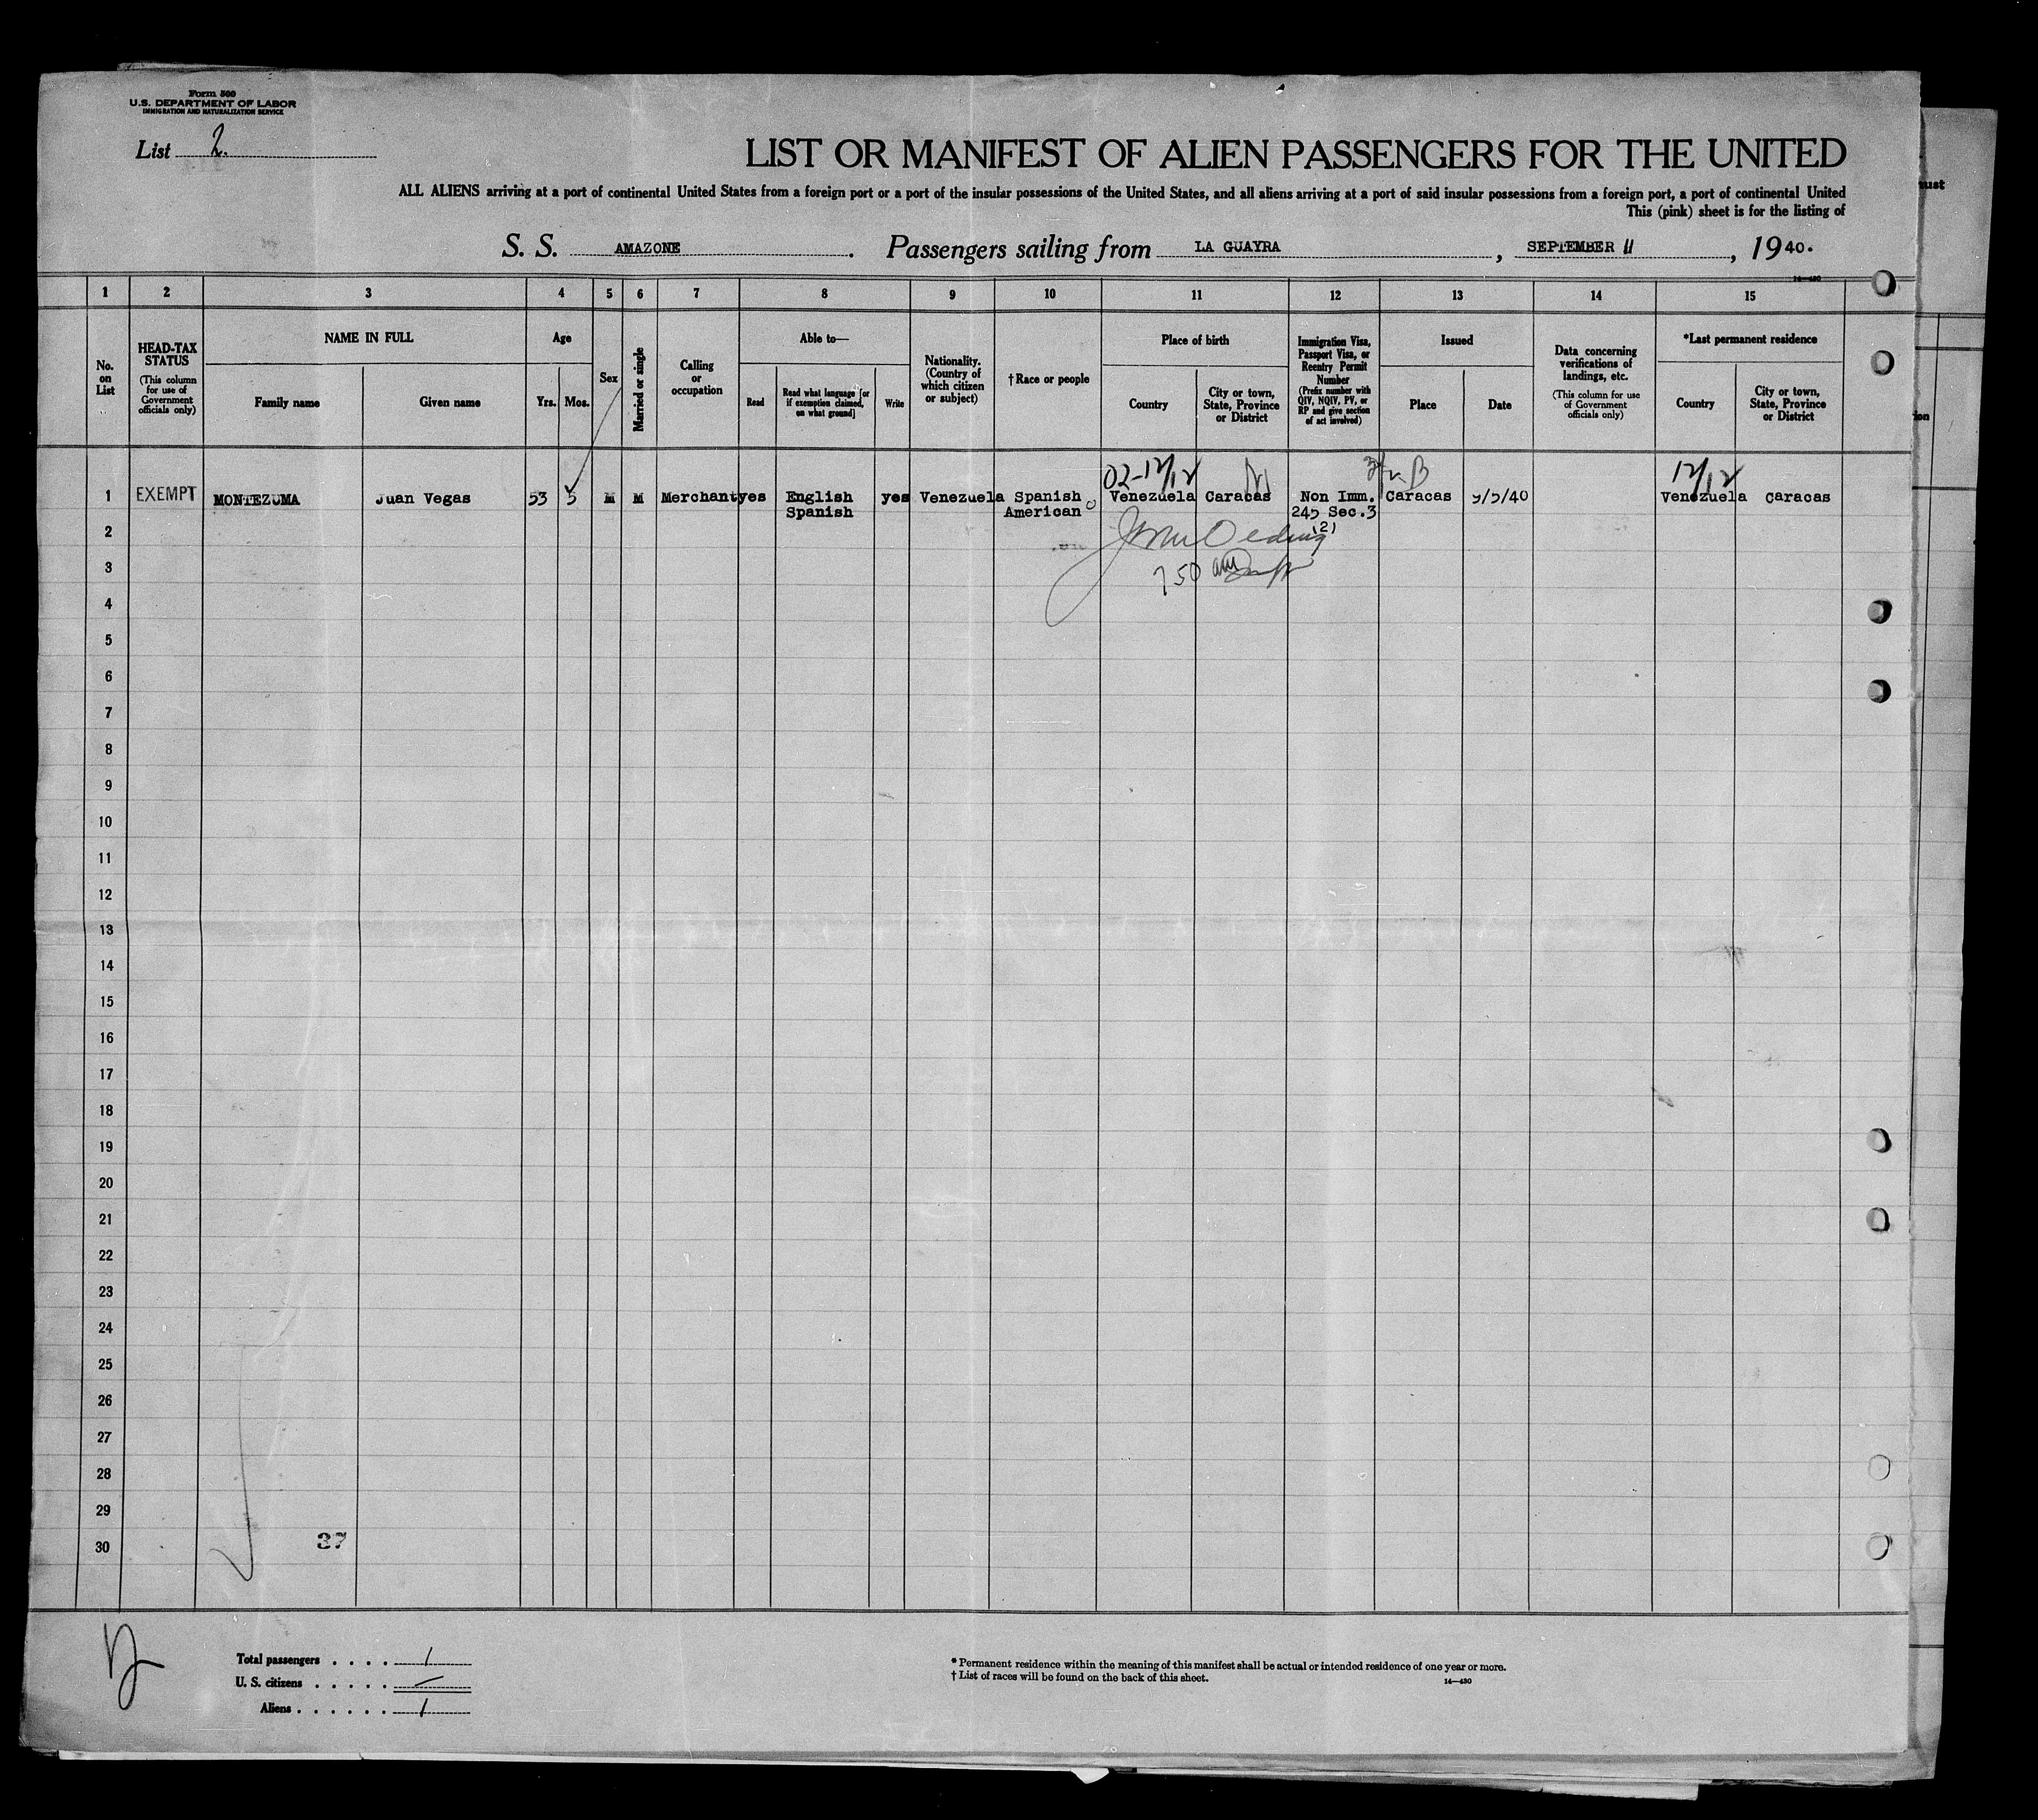 Form 500
U.S. DEPARTMENT OF LABOR
IMMIGRATION AND NATURALIZATION SERVICE
List 2.
LIST OR MANIFEST OF ALIEN PASSENGERS FOR THE UNITED
ALL ALIENS arriving at a port of continental United States from a foreign port or a port of the insular possessions of the United States, and all aliens arriving at a port of said insular possessions from a foreign port, a port of continental United
This (pink) sheet is for the listing of
S. S. AMAZONE. Passengers sailing from LA GUAYRA, SEPTEMBER 11, 1940.
14—430
1 2 3 4 5 6 7 8 9 10 11 12 13 14 15
No. on List
HEAD-TAX STATUS
(This column for use of Government officials only)
NAME IN FULL
Family name
Given name
Age
Yrs.
Mos.
Sex
Married or single
Calling or occupation
Able to—
Read
Read what language [or if exemption claimed, on what ground]
Write
Nationality. (Country of which citizen or subject)
†Race or people
Place of birth
Country
City or town, State, Province or District
Immigration Visa, Passport Visa, or Reentry Permit Number
(Prefix number with QIV, NQIV, PV, or RP and give section of act involved)
Issued
Place
Date
Data concerning verifications of landings, etc.
(This column for use of Government officials only)
*Last permanent residence
Country
City or town, State, Province or District
02-12/12
12/12
1 EXEMPT MONTEZUMA Juan Vegas 53 5 M M Merchant yes English yes Venezuela Spanish Venezuela Caracas Non Imm. Caracas Venezuela Caracas
Spanish American 245 Sec.3
2 (2)
3 750 am
4
5
6
7
8
9
10
11
12
13
14
15
16
17
18
19
20
21
22
23
24
25
26
27
28
29
30 37
Total passengers . . . . 1
U. S. citizens . . . . . —
Aliens . . . . . . 1
* Permanent residence within the meaning of this manifest shall be actual or intended residence of one year or more.
† List of races will be found on the back of this sheet.
14—430